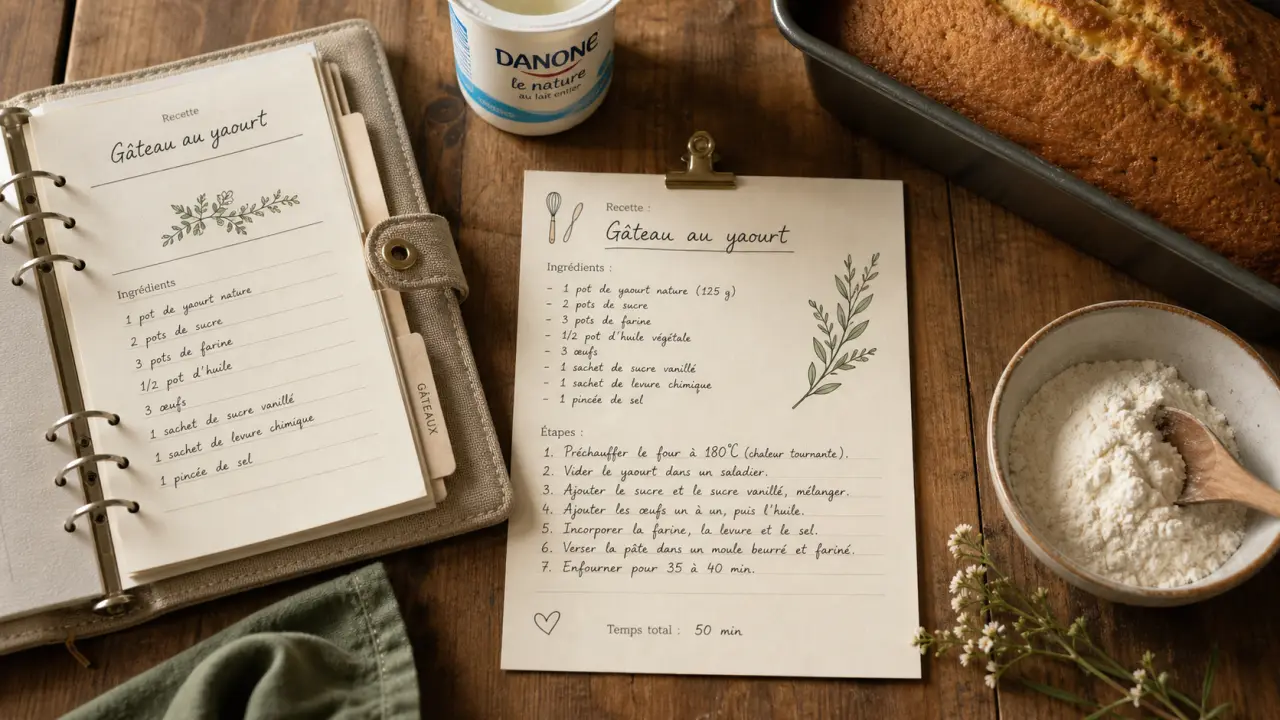 Recette
Gâteau au yaourt
Ingrédients
1 pot de yaourt nature
2 pots de sucre
3 pots de farine
1/2 pot d'huile
3 œufs
1 sachet de sucre vanillé
1 sachet de levure chimique
1 pincée de sel
GÂTEAUX
DANONE
le nature
au lait entier
Recette :
Gâteau au yaourt
Ingrédients :
- 1 pot de yaourt nature (125 g)
- 2 pots de sucre
- 3 pots de farine
- 1/2 pot d'huile végétale
- 3 œufs
- 1 sachet de sucre vanillé
- 1 sachet de levure chimique
- 1 pincée de sel
Étapes :
1. Préchauffer le four à 180°C (chaleur tournante).
2. Vider le yaourt dans un saladier.
3. Ajouter le sucre et le sucre vanillé, mélanger.
4. Ajouter les œufs un à un, puis l'huile.
5. Incorporer la farine, la levure et le sel.
6. Verser la pâte dans un moule beurré et fariné.
7. Enfourner pour 35 à 40 min.
Temps total : 50 min